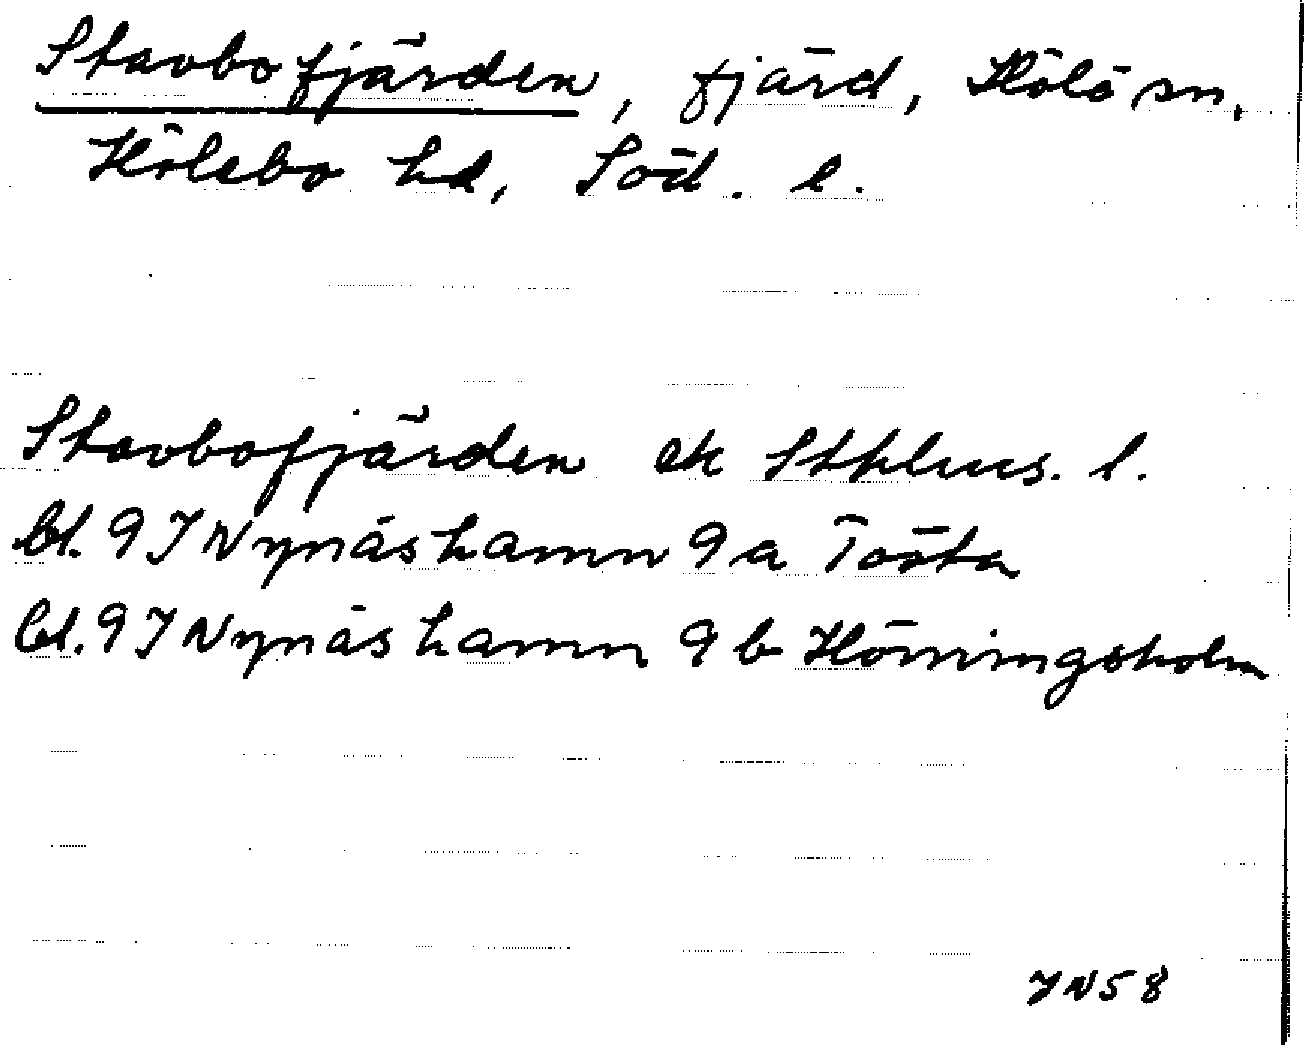 Stavbofjärden, fjärd, Hölö sn,
Hölebo hd, Söd. l.
Stavbofjärden ek Sthlms. l.
bl. 9I Nynäshamn 9a Tösta
bl. 9I Nynäshamn 9b Hörningsholm
IN58